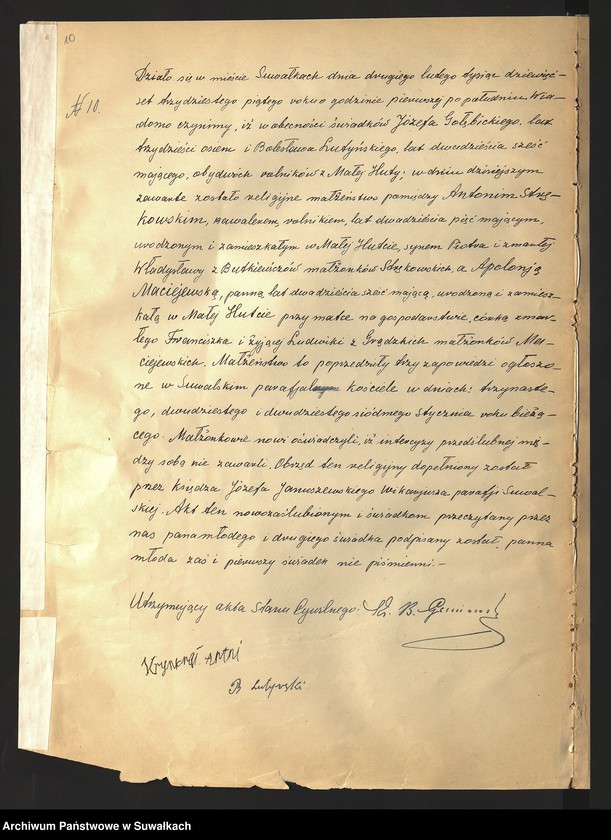 10
№ 10.
Działo się w mieście Suwałkach dnia drugiego lutego tysiąc dziewięć-
set trzydziestego piątego roku o godzinie pierwszej po południu. Wia-
domo czynimy, iż w obecności świadków Józefa Gołębickiego, lat
trzydzieści osiem i Bolesława Lutyńskiego, lat dwudzieścia sześć
mającego, obydwóch rolników z Małej Huty; w dniu dzisiejszym
zawarte zostało religijne małżeństwo pomiędzy Antonim
kowskim, kawalerem, rolnikiem, lat dwadzieścia pięć mającym,
urodzonym i zamieszkałym w Małej Hucie, synem Piotra i zmarłej
Władysławy z Butkiewiczów małżonków a Apolonją
Maciejewską, panną, lat dwadzieścia sześć mającą, urodzoną i zamiesz-
kałą w Małej Hucie przy matce na gospodarstwie, córką zmar-
łego Franciszka i żyjącej Ludwiki z Grądzkich małżonków Ma-
ciejewskich. Małżeństwo to poprzedziły trzy zapowiedzi ogłoszo-
ne w Suwalskim parafjalnym kościele w dniach: trzynaste-
go, dwudziestego i dwudziestego siódmego stycznia roku bieżą-
cego. Małżonkowie nowi oświadczyli, iż intercyzy przedślubnej mię-
dzy sobą nie zawarli. Obrzęd ten religijny dopełniony został
przez księdza Józefa Januszewskiego Wikarjusza parafji Suwal-
skiej. Akt ten nowozaślubionym i świadkom przeczytany przez
nas pana młodego i drugiego świadka podpisany został, panna
młoda zaś i pierwszy świadek nie piśmienni.-
Utrzymujący akta Stanu Cywilnego: Ks. B.
B Lutyński
Archiwum Państwowe w Suwałkach